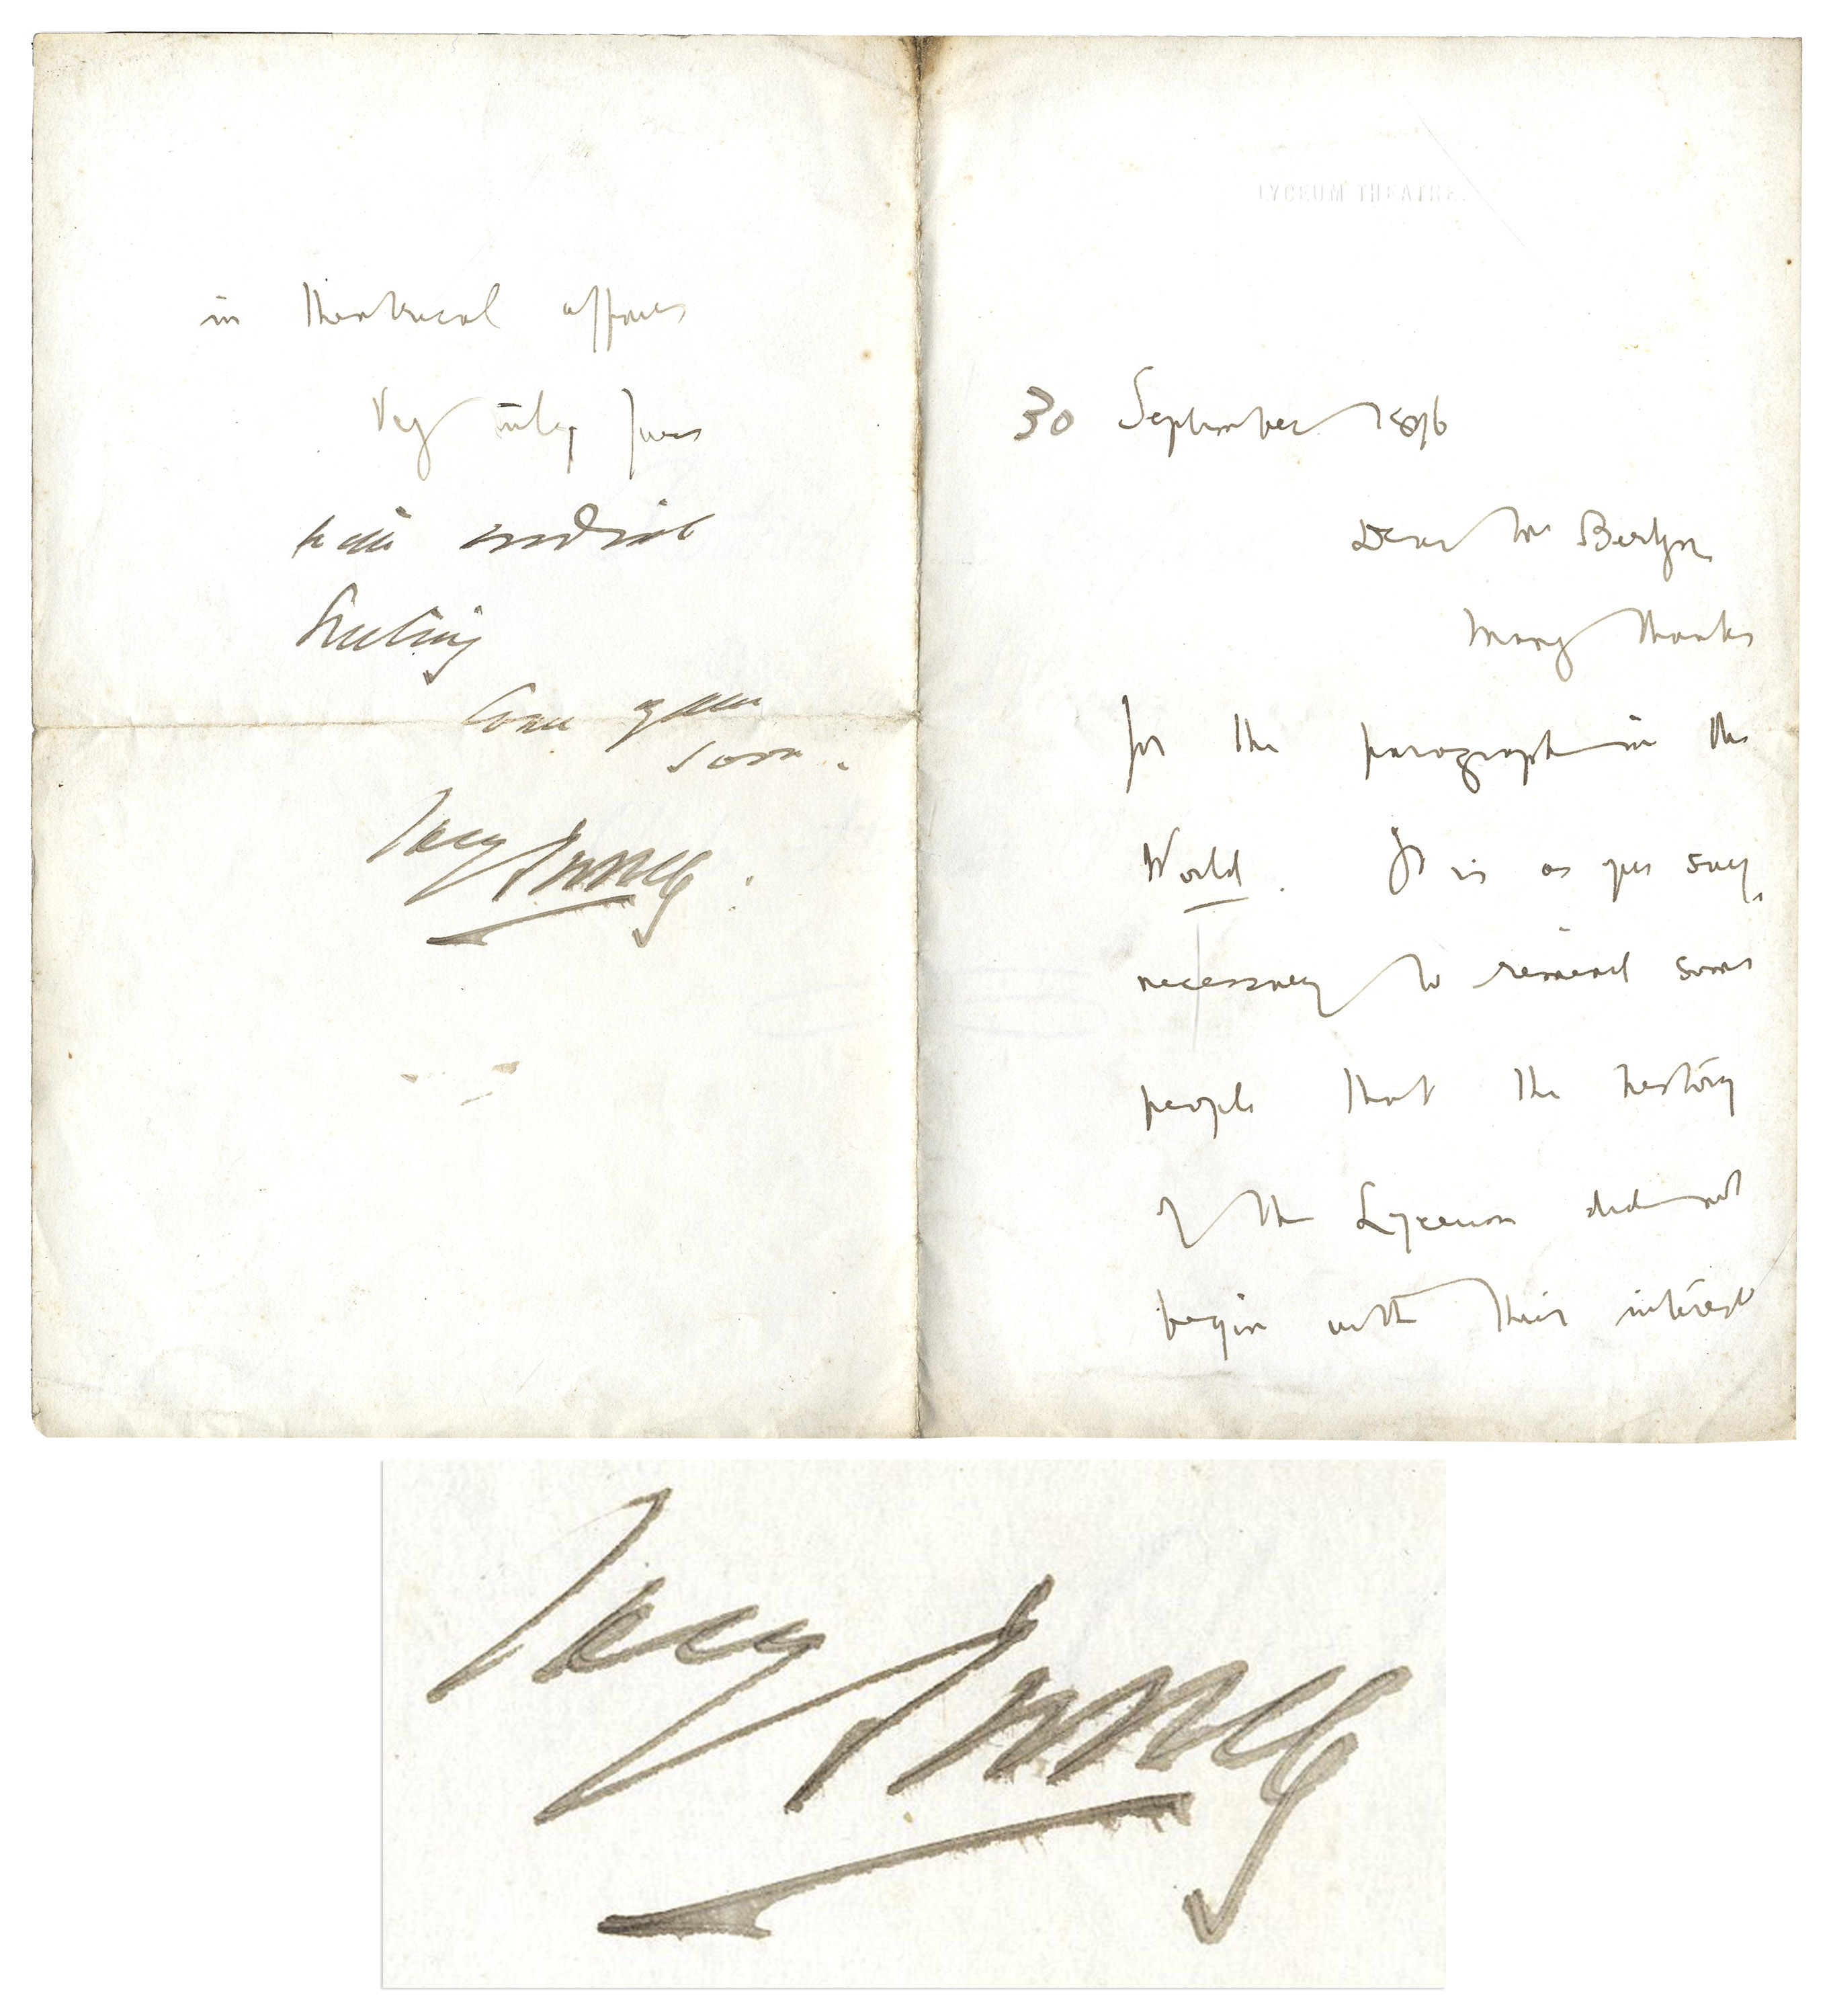 LYCEUM THEATRE.
30 September 1896
Dear Mr Berlyn
Many thanks
for the paragraph in the
World. It is as you say,
necessary to remind some
people that the history
of the Lyceum did not
begin with their interest
in theatrical affairs
Very truly yours
with cordial
Greeting
Come again
soon.
Henry Irving.
Henry Irving